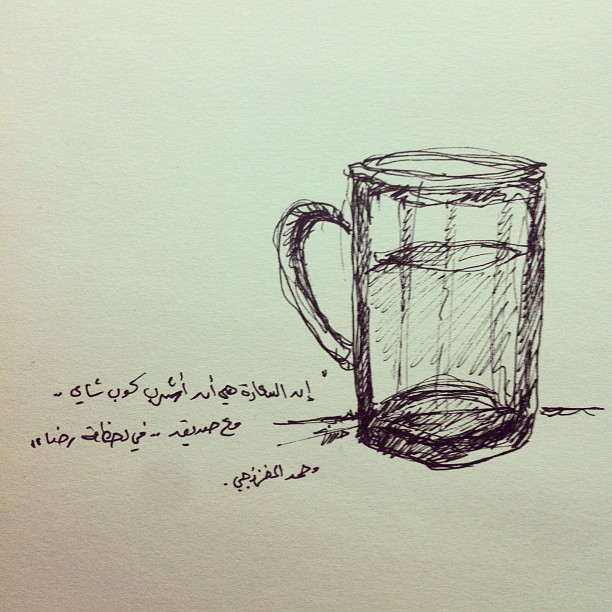 " إن السعادة هي أن أشرب كوب شاي ..
مع صديق .. في لحظة رضا "
محمد المخزنجي .